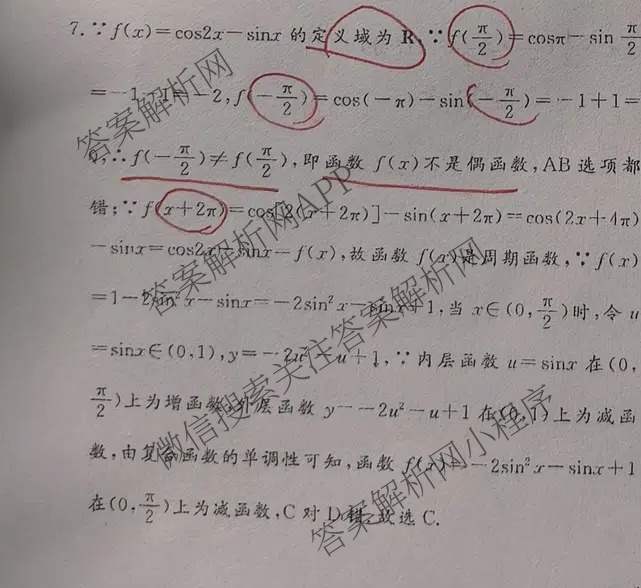 7.∵f(x)=cos2x-sinx的定义域为R,∵f(π/2)=cosπ-sin π/2
=-1-1=-2,f(-π/2)=cos(-π)-sin(-π/2)=-1+1=
0,∴f(-π/2)≠f(π/2),即函数f(x)不是偶函数,AB选项都
错;∵f(x+2π)=cos[2(x+2π)]-sin(x+2π)=cos(2x+4π)
-sinx=cos2x-sinx=f(x),故函数f(x)是周期函数,∵f(x)
=1-2sin²x-sinx=-2sin²x-sinx+1,当x∈(0,π/2)时,令u
=sinx∈(0,1),y=-2u²-u+1,∵内层函数u=sinx在(0,
π/2)上为增函数,外层函数y=-2u²-u+1在(0,1)上为减函
数,由复合函数的单调性可知,函数f(x)=-2sin²x-sinx+1
在(0,π/2)上为减函数,C对D错.故选C.
答案解析网
答案解析网APP
微信搜索关注答案解析网
答案解析网小程序